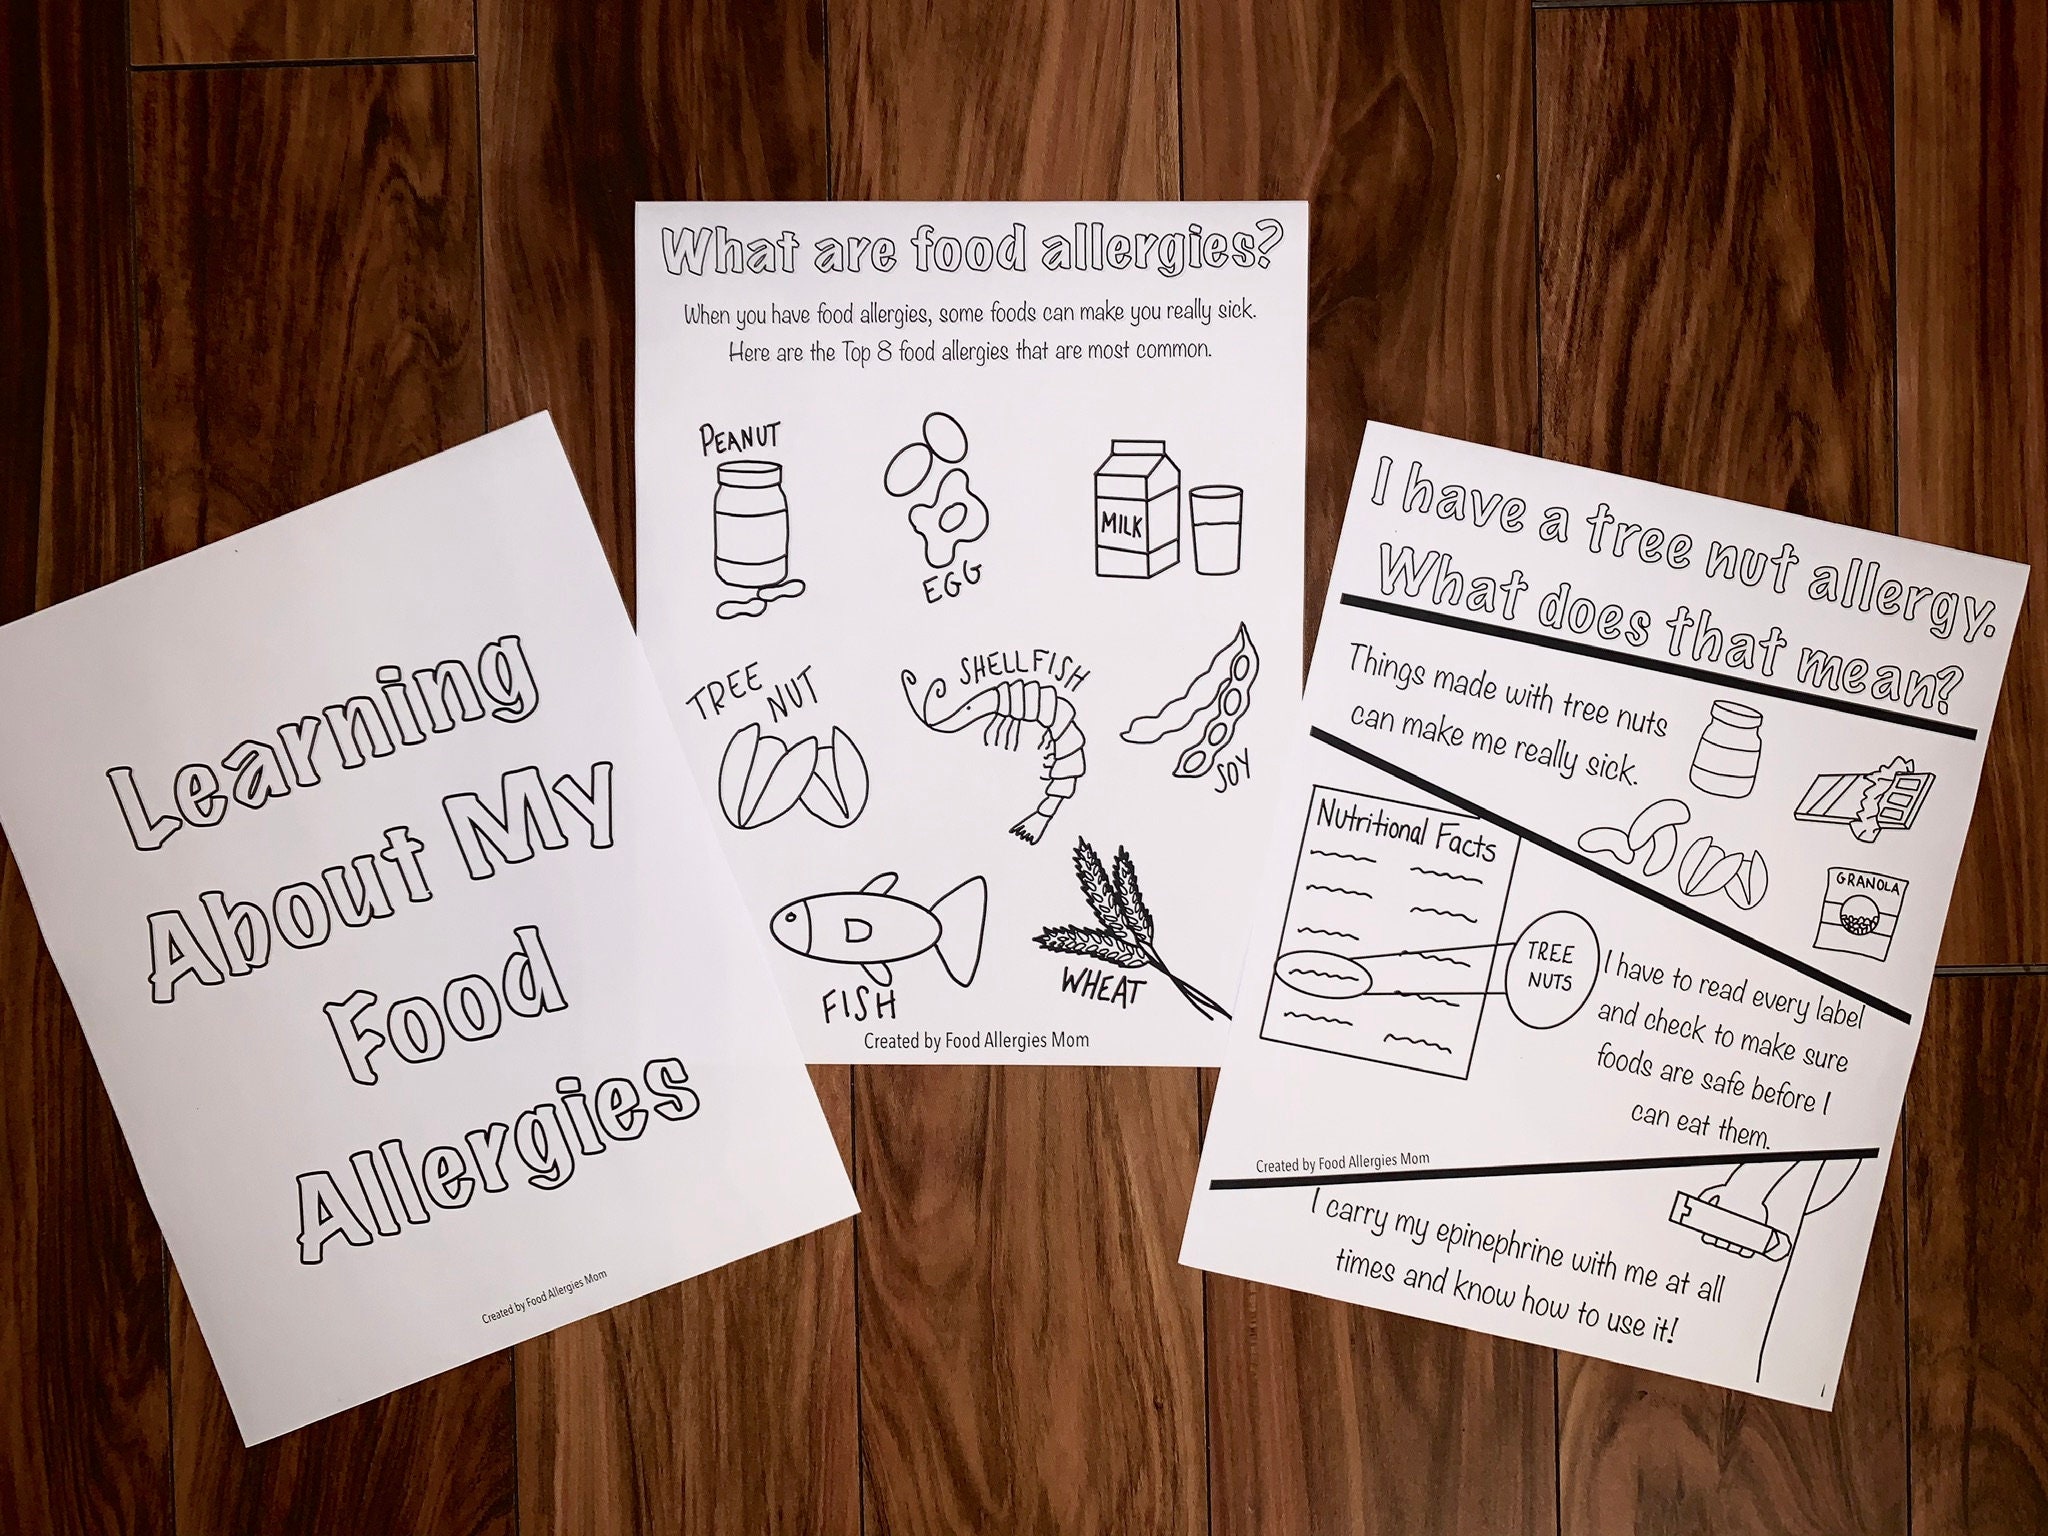 Learning
About My
Food
Allergies
Created by Food Allergies Mom
What are food allergies?
When you have food allergies, some foods can make you really sick.
Here are the Top 8 food allergies that are most common.
PEANUT
EGG
MILK
TREE
NUT
SHELLFISH
SOY
FISH
WHEAT
Created by Food Allergies Mom
I have a tree nut allergy.
What does that mean?
Things made with tree nuts
can make me really sick.
GRANOLA
Nutritional Facts
TREE
NUTS
I have to read every label
and check to make sure
foods are safe before I
can eat them.
Created by Food Allergies Mom
I carry my epinephrine with me at all
times and know how to use it!